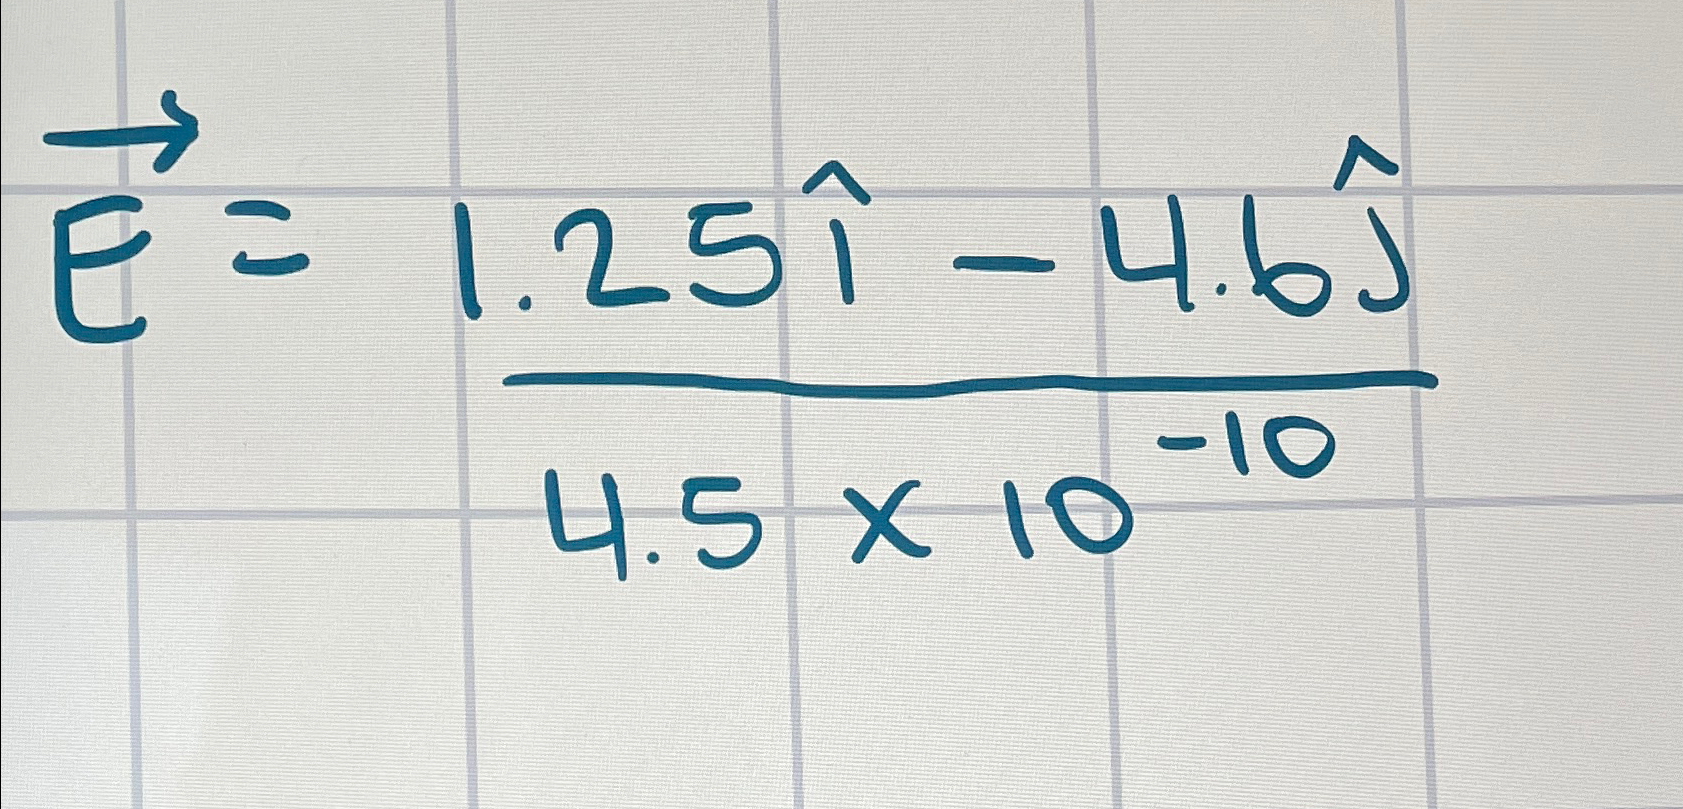 E⃗ = 1.25î - 4.6ĵ
4.5 x 10⁻¹⁰